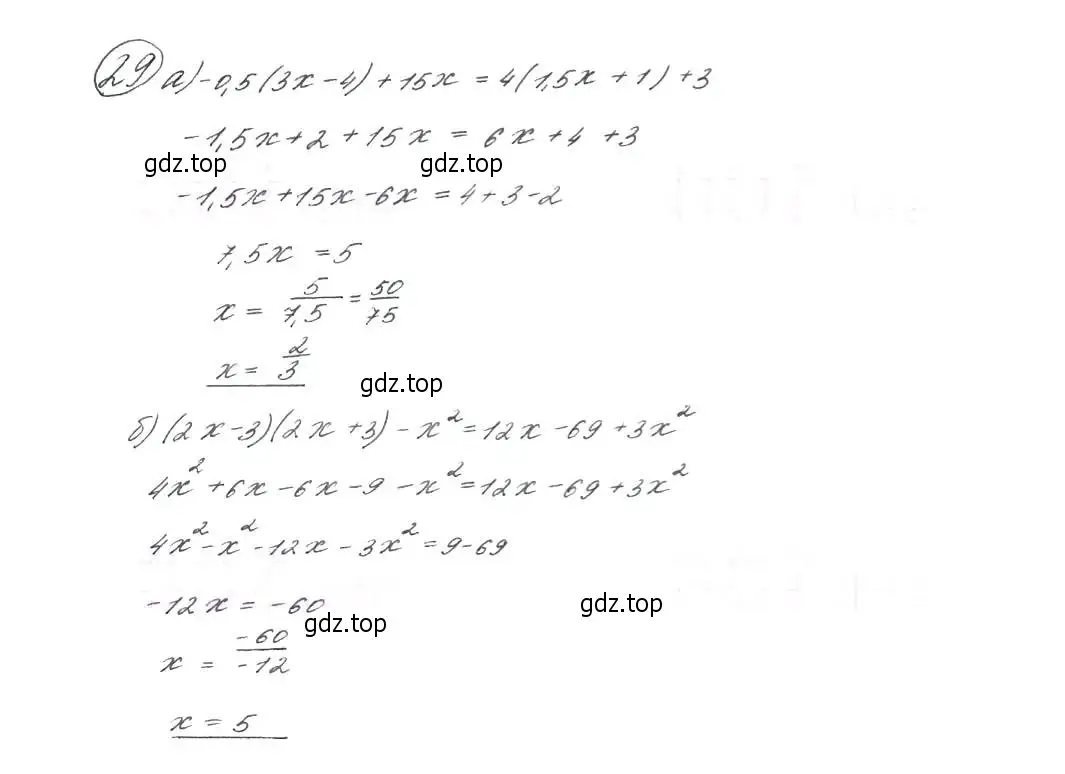 29 а) -0,5(3x-4)+15x = 4(1,5x+1)+3
-1,5x+2+15x = 6x+4+3
gdz.top gdz.top
-1,5x+15x-6x = 4+3-2
7,5x = 5
x = 5/7,5 = 50/75
x = 2/3
gdz.top
б) (2x-3)(2x+3)-x² = 12x-69+3x²
4x²+6x-6x-9-x² = 12x-69+3x²
4x²-x²-12x-3x² = 9-69
-12x = -60
gdz.top gdz.top
x = -60/-12
x = 5